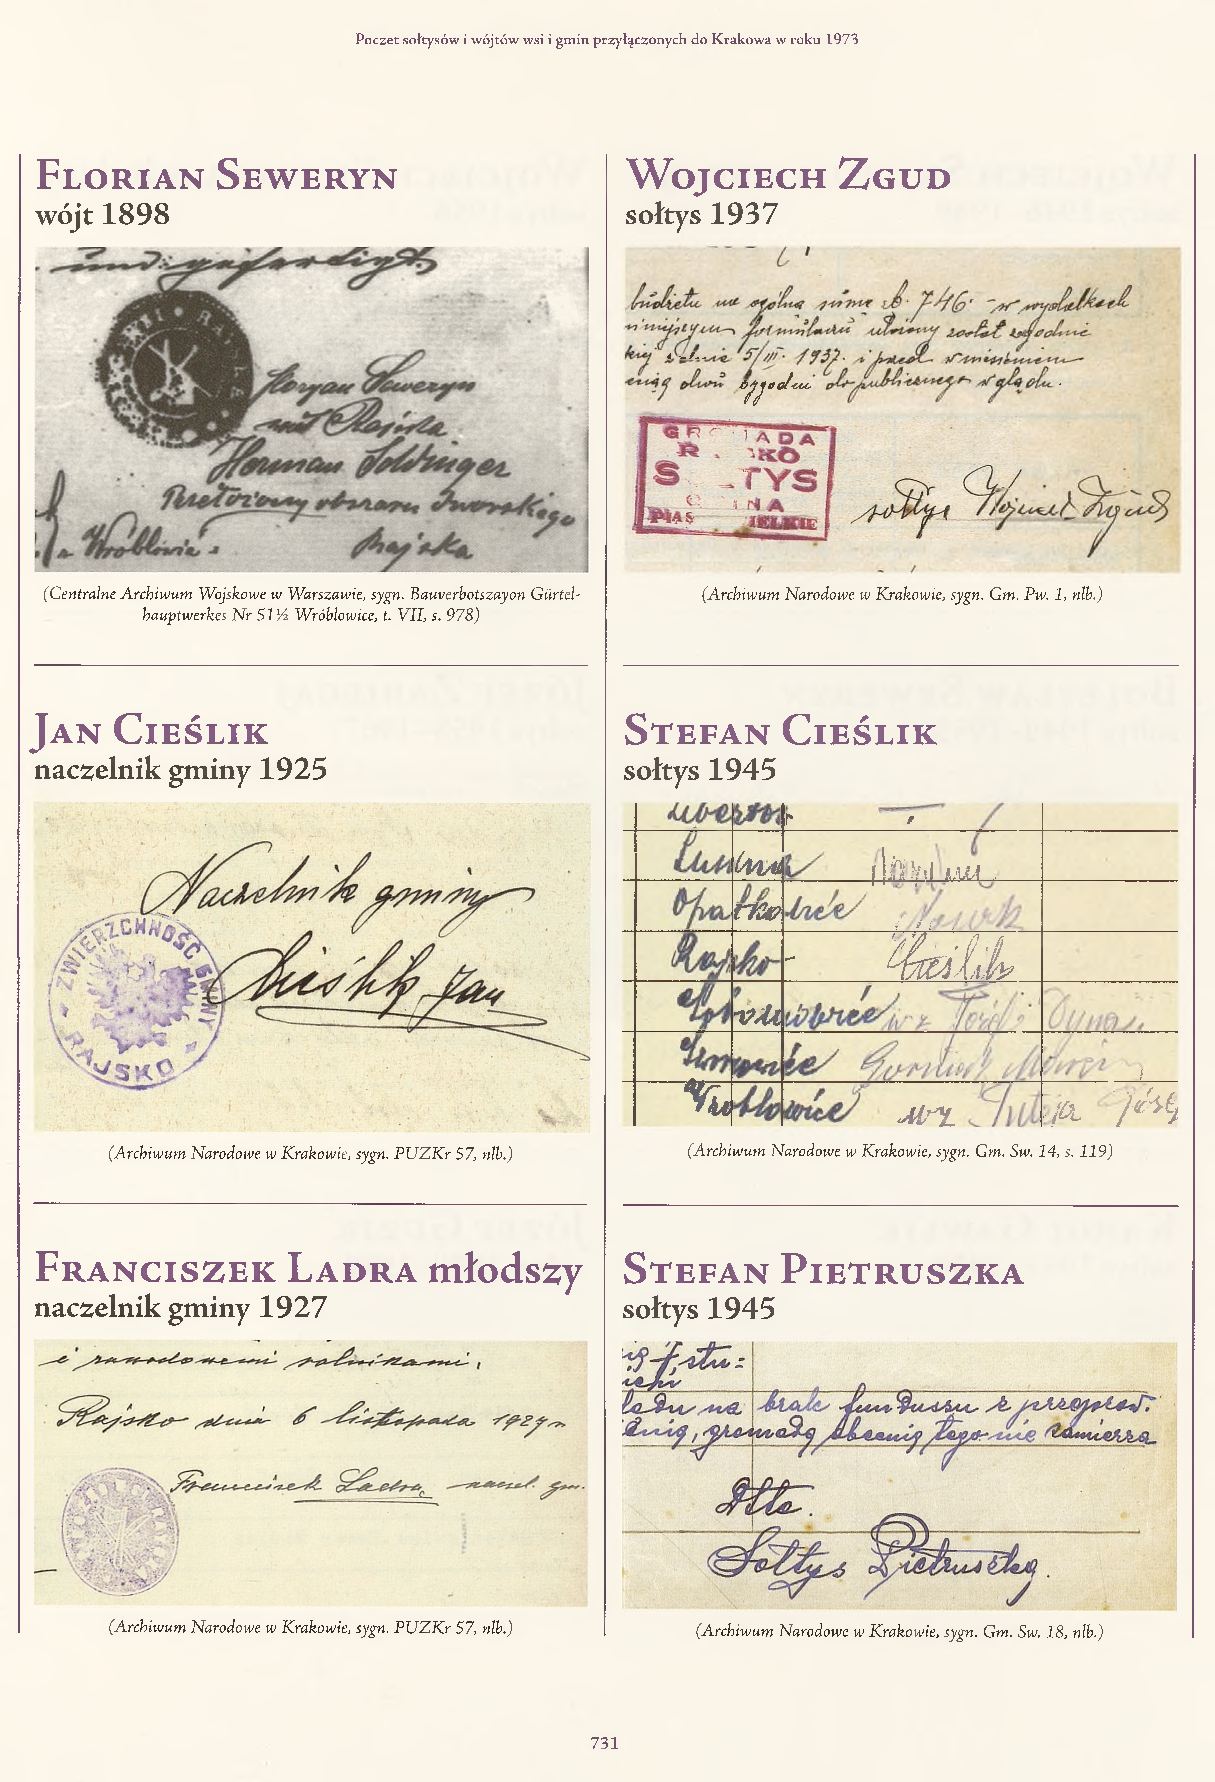 Poczet sołtysów i wójtów wsi i gmin przyłączonych do Krakowa w roku 1973
Florian Seweryn
wójt 1898
und gefertigt.
Floryan Seweryn
wójt Rajska
Herman Goldinger
Przełożony obszaru dworskiego
Wróblowice Rajska
(Centralne Archiwum Wojskowe w Warszawie, sygn. Bauverbotszayon Gürtel-
hauptwerkes Nr 51½ Wróblowice, t. VII, s. 978)
Jan Cieślik
naczelnik gminy 1925
Naczelnik gminy
Cieślik Jan
ZWIERZCHNOŚĆ GMINY
RAJSKO
(Archiwum Narodowe w Krakowie, sygn. PUZKr 57, nlb.)
Franciszek Ladra młodszy
naczelnik gminy 1927
i zawodowemi rolnikami.
Rajsko dnia 6 listopada 1927 r
Franciszek Ladra naczel. gm.
(Archiwum Narodowe w Krakowie, sygn. PUZKr 57, nlb.)
Wojciech Zgud
sołtys 1937
budżetu na ogólną sumę zł. 746 - w wydatkach
niniejszym formularzu ułożony został zgodnie
5/III. 1937. i przed wniesieniem
dwu tygodni do publicznego wglądu.
GROMADA
RAJSKO
SOŁTYS
GMINA
PIASKI WIELKIE
sołtys Wojciech Zgud
(Archiwum Narodowe w Krakowie, sygn. Gm. Pw. 1, nlb.)
Stefan Cieślik
sołtys 1945
Lusina
Opatkowice Nowak
Rajsko Cieślik
wz Józef
Wróblowice wz
(Archiwum Narodowe w Krakowie, sygn. Gm. Sw. 14, s. 119)
Stefan Pietruszka
sołtys 1945
na brak funduszu z przeprow.
gromada obecnie tego nie zamierza
Sołtys Pietruszka.
(Archiwum Narodowe w Krakowie, sygn. Gm. Sw. 18, nlb.)
731